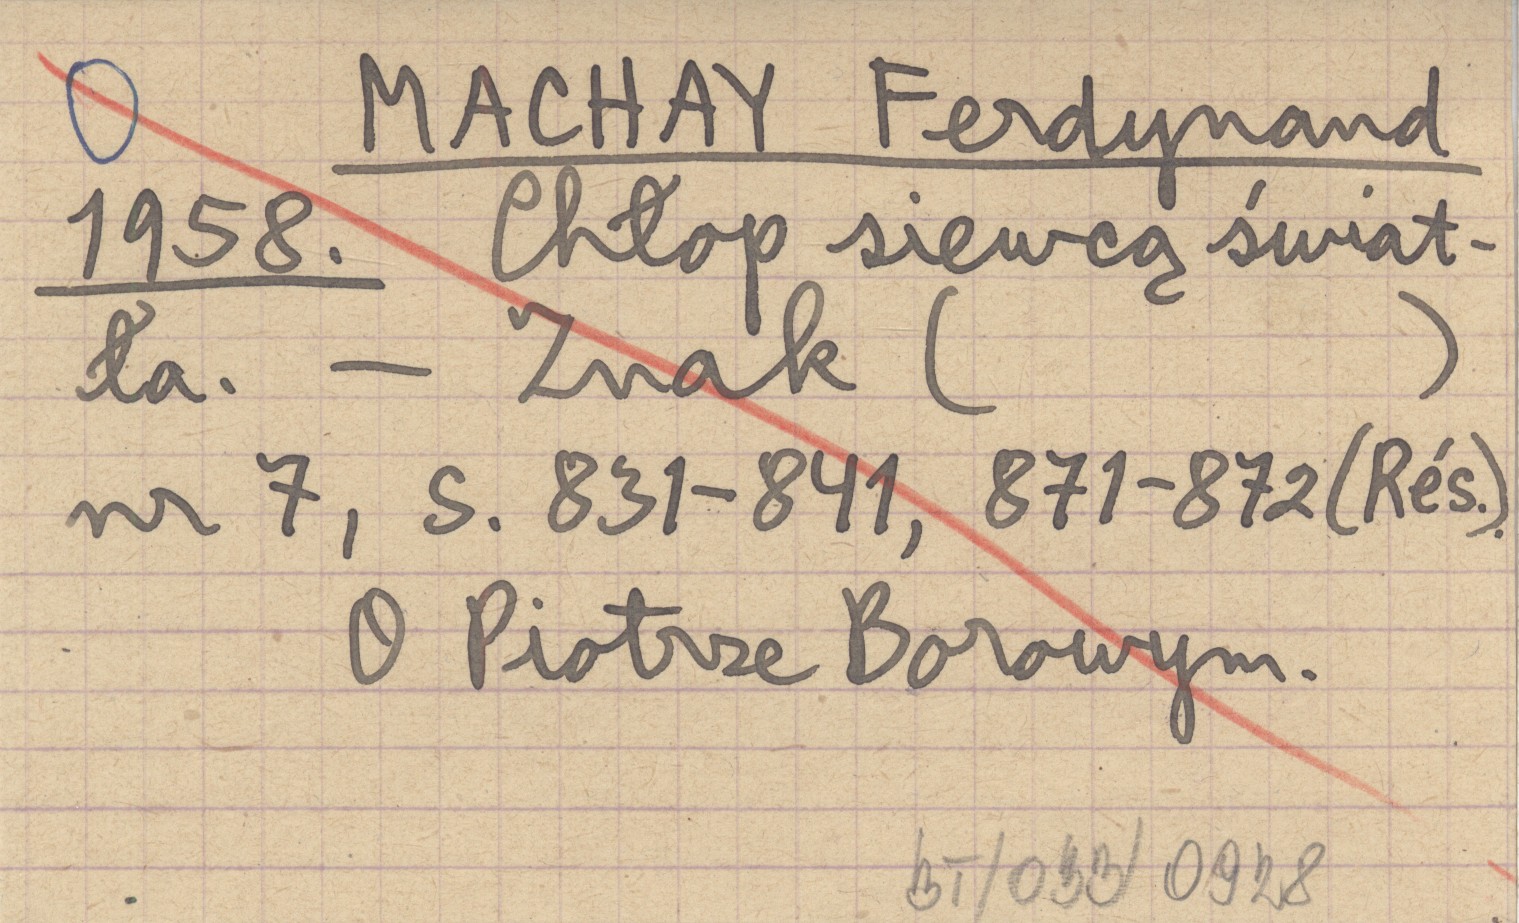 MACHAY Ferdynand
1958. Chłop siewcą świat-
ła. — Znak ( )
nr 7, s. 831-841, 871-872 (Rés.).
O Piotrze Borowym.
0928